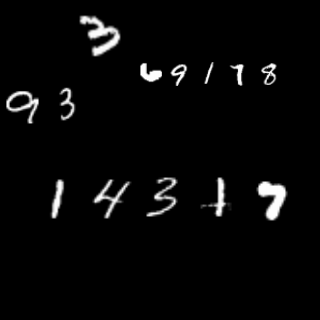 3
69178
93
14317